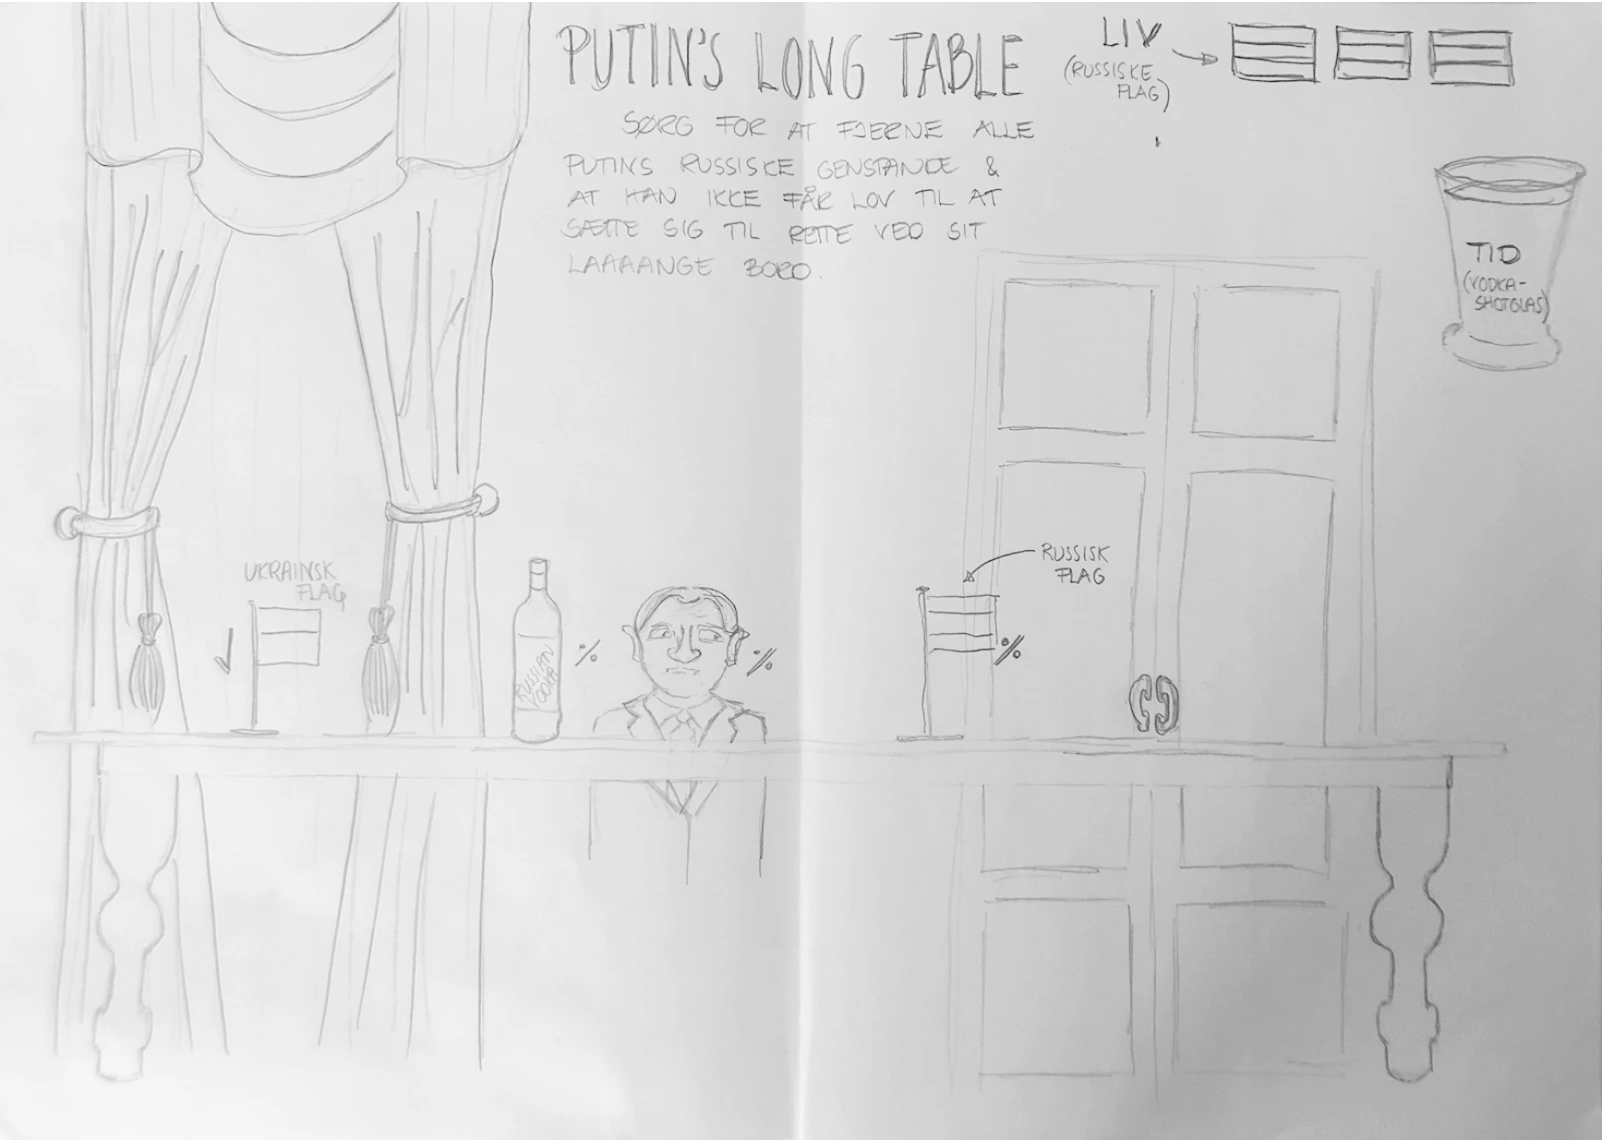 PUTIN'S LONG TABLE
SØRG FOR AT FJERNE ALLE
PUTINS RUSSISKE GENSTANDE &
AT HAN IKKE FÅR LOV TIL AT
SÆTTE SIG TIL RETTE VED SIT
LAAAANGE BORD.
LIV
(RUSSISKE
FLAG)
TID
(VODKA-
SHOTGLAS)
UKRAINSK
FLAG
RUSSIAN
VODKA
%
%
RUSSISK
FLAG
%